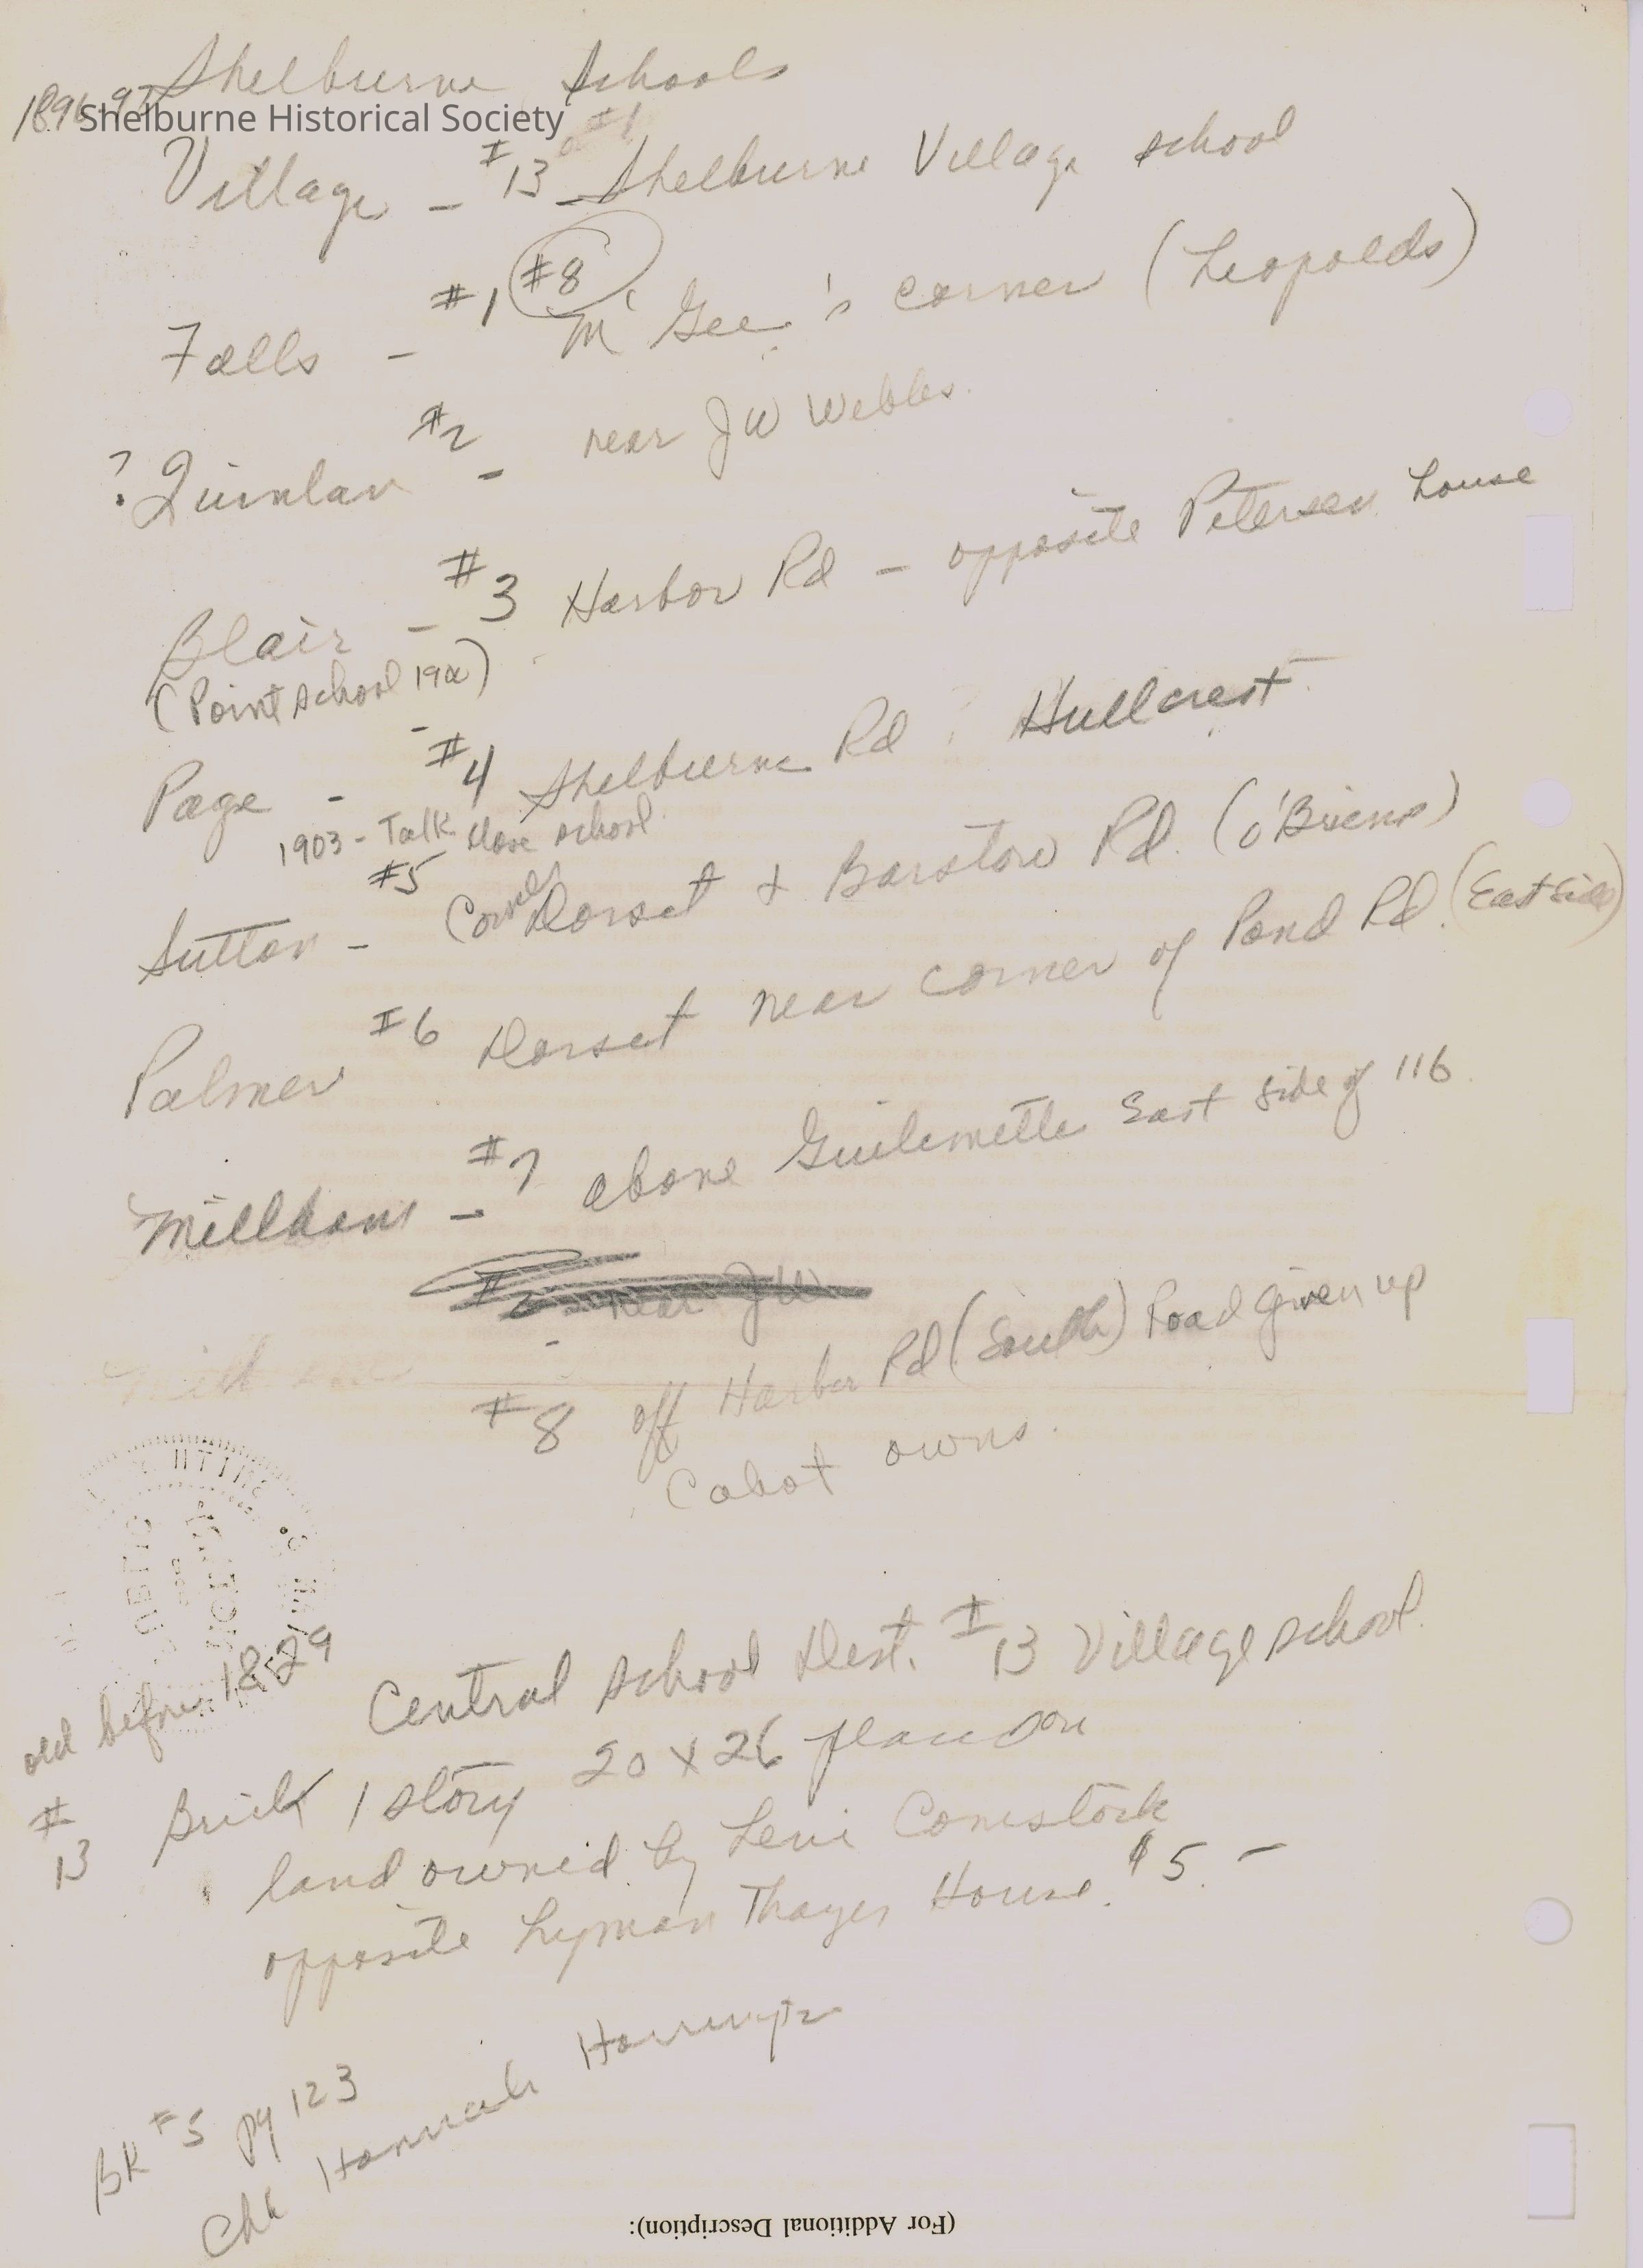 Shelburne Schools
1896-97
Shelburne Historical Society
#1
Village - #13 Shelburne Village school
Falls - #1 #8 McGee's corner (Leopolds)
? Quinlan #2 - near JW Webbs.
Blair - #3 Harbor Rd - opposite Petersen house
(Point school
Page - #4 Shelburne Rd Hullcrest
1903 - Talk close school.
Sutton - #5 Corner Dorset & Barstow Rd. (O'Briens)
Palmer #6 Dorset near corner of Pond Rd. (East side)
Milldam - #7 above Guilemette East side of 116
#2 near JW
- #8 off Harbor Rd (South) Road given up
Cabot owns.
Central school Dist. #13 Village school.
old before 1829
#13 Brick 1 story 20 x 26 on
land owned by Levi Comstock
opposite Lyman Thayer House. $5. -
BK #5 pg 123
Chk Hannah
(For Additional Description):